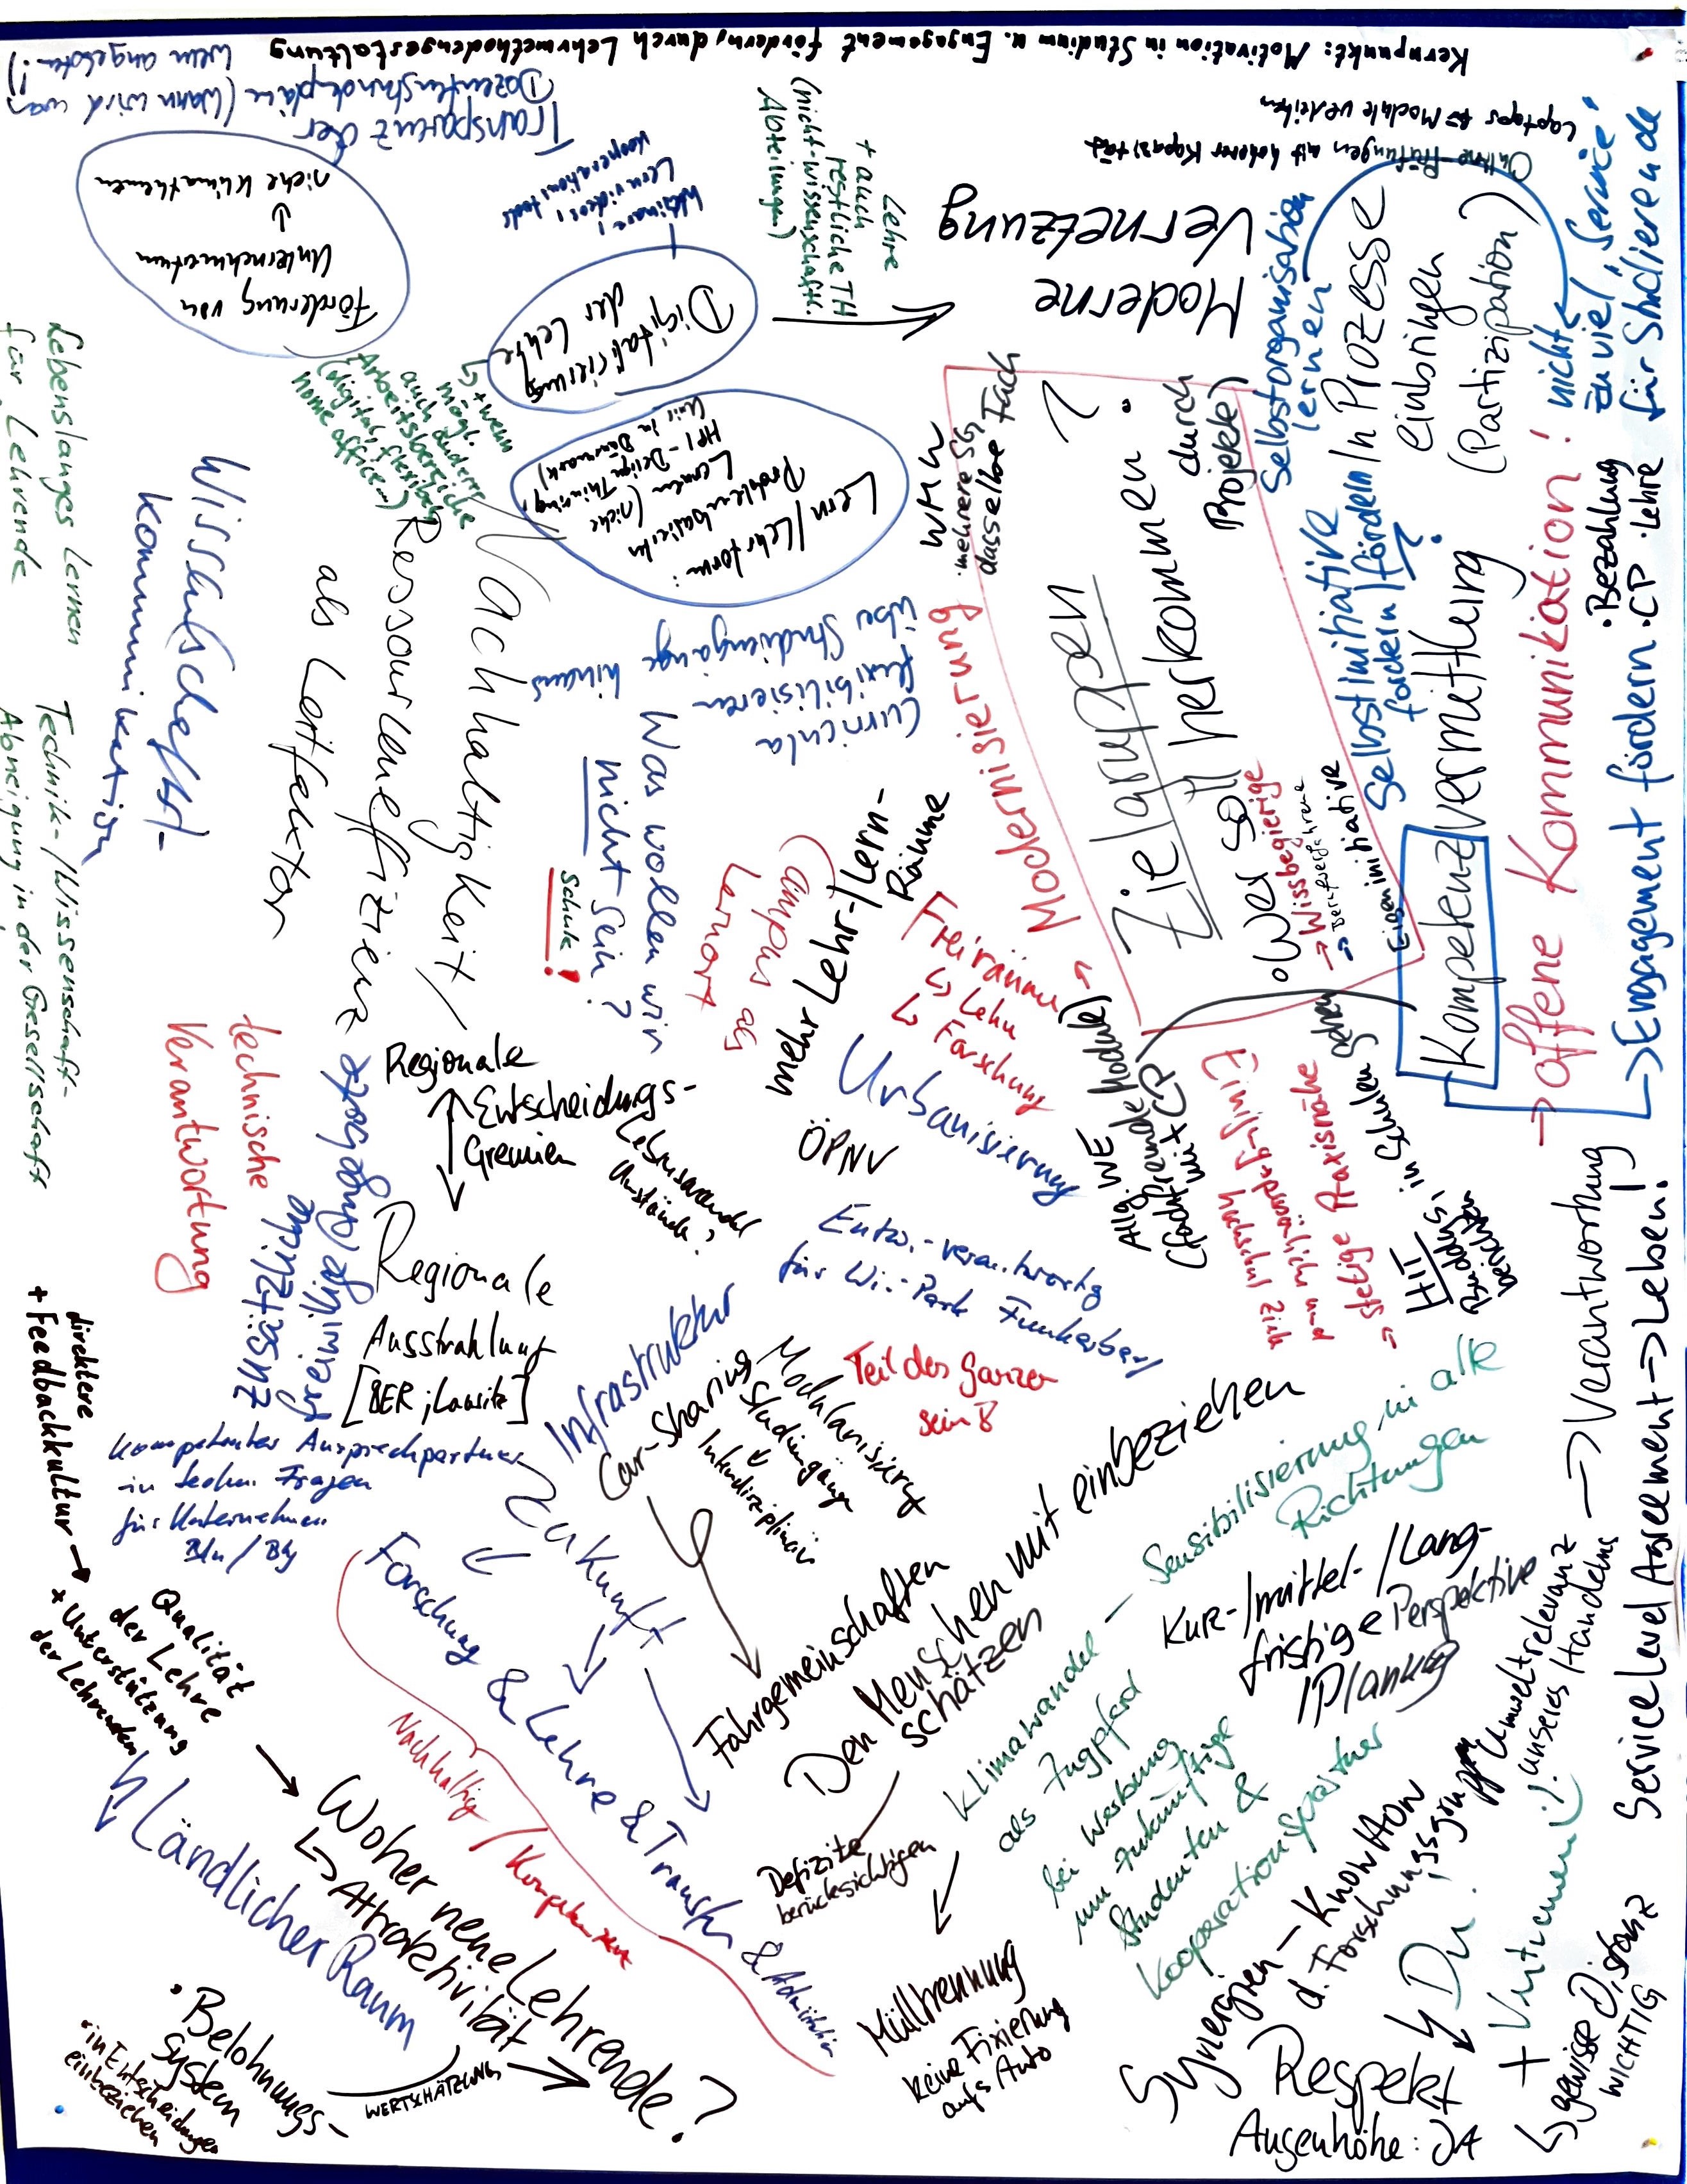 Kernpunkt: Motivation in Studium u. Engagement fördern, durch Lehrmethodengestaltung
Online Prüfungen mit hoherer Kapazität
Laptops f. Module verleihen
Transparenz der
Dozentenstundenpläne (wann wird was
wem angeboten!)
Förderung von
Unternehmertum
↓
siehe Klimathemen
Webinare,
Lernvideos,
Kooperationstools
Digitalisierung
der Lehre
↳ + wenn
mögl.
auch andere
Arbeitsbereiche
(digital, flexibel,
home office...)
Lehre
+ auch
restliche TH
(nicht-wissenschaftl.
Abteilungen)
Moderne
Vernetzung
Lern/Lehrform:
Problembasiertes
Lernen (siehe
HPI - Design Thinking,
Uni in Dänmark)
Curricula
flexibilisieren
über Studiengänge hinaus
Lebenslanges Lernen
für Lehrende
Wissenschafts-
kommunikation
Technik-/Wissenschaft-
Abneigung in der Gesellschaft
Nachhaltigkeit/
Ressourceneffizienz
als Leitfaktor
Was wollen wir
nicht sein?
Schule!
Campus als
Lernort
mehr Lehr-/Lern-
Räume
Freiräume
↳ Lehre
↳ Forschung
Modernisierung
WMH
• mehrere SG
dasselbe Fach
Zielgruppen
?
• Wer soll herkommen?
durch
Projekte)
→ Wissbegierige
→ Berufserfahrene
Eigeninitiative
Selbstorganisation
lernen
In Prozesse
einbringen
(Partizipation)
nicht
zu viel "Service"
für Studierende
Selbstinitiative
Selbstinitiative fördern
fordern
?
Kompetenzvermittlung
→ offene Kommunikation!
→ Engagement fördern
• Bezahlung
• CP • Lehre
Allg. WE
(fachfremde Module)
mit x CP
stetige Praxisnähe
HIT
Ausbildungs-
berichten
in Schulen gehen
technische
Verantwortung
zusätzliche
freiwillige Angebote
Regionale
Entscheidungs-
Gremien
Lebenswandel
Umstände?
Regionale
Ausstrahlung
[BER; Lausitz]
ÖPNV
Urbanisierung
Entw.-verantwortg
für Wi.-Park Funkerberg
Infrastruktur
Car-Sharing
Modularisierung
Studiengänge
↓
Interdisziplinär
Teil des Ganzen
sein
direktere
+ Feedbackkultur
kompetenter Ansprechpartner
in techn. Fragen
für Unternehmen
Bln / Bbg
Zukunft
Forschung & Lehre & Transfer & Administration
Nachhaltig / Kompetenzen
Qualität
der Lehre
+ Unterstützung
der Lehrenden
Ländlicher Raum
Woher neue Lehrende?
↳ Attraktivität
• Belohnungs-
system
• in Entscheidungen
einbeziehen
WERTSCHÄTZUNG
Fahrgemeinschaften
Den Menschen mit einbeziehen
schätzen
Defizite
berücksichtigen
Mülltrennung
keine Fixierung
aufs Auto
Klimawandel – Sensibilisierung in alle
Richtungen
als Zugpferd
bei Werbung
um zukünftige
Studenten &
Kooperationspartner
Kurz-/mittel-/Lang-
fristige Perspektive
/Planung
Synergien – Know How
d. Forschungsgruppen
Umweltrelevanz
unseres Handelns → Verantwortung
Service Level Agreement → Leben!
Respekt
Augenhöhe: JA
Du!
+ Vertrauen!
↳ gewisse Distanz
WICHTIG